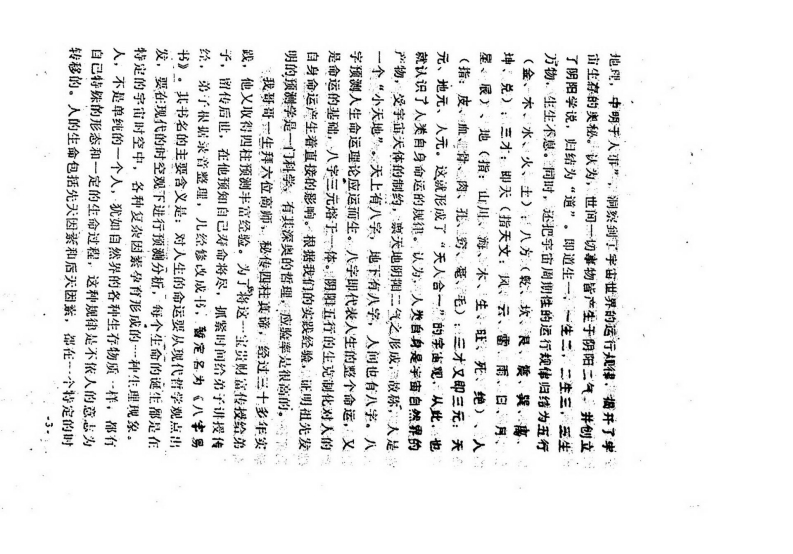 地理，中明于人事”，洞察到了宇宙世界的运行规律，揭开了宇
宙生存的奥秘。认为，世间一切事物皆产生于阴阳二气，并创立
了阴阳学说，归结为“道”。即道生一，一生二，二生三，三生
万物，生生不息。同时，还把宇宙周期性的运行规律归结为五行
（金、水、木、火、土）；八方（乾、坎、艮、震、巽、离、
坤、兑）；三才：即天（指天文：风、云、雷、雨、日、月、
星、辰）、地（指：山川、海、水、生、旺、死、绝）、人
（指：皮、血、骨、肉、孔、窍、毫、毛）；三才又即三元：天
元、地元、人元。这就形成了“天人合一”的宇宙观。从此，也
就认识了人类自身命运的规律。认为，人类自身是宇宙自然界的
产物，受宇宙天体的制约，禀天地阴阳二气之形成，故称，人是
一个“小天地”。天上有八字，地下有八字，人间也有八字。八
字预测人生命运理论应运而生。八字即代表人生的整个命运，又
是命运的基础，八字三元熔于一体。阴阳五行的生克制化对人的
自身命运产生着直接的影响。根据我们的实践经验，证明祖先发
明的预测学是一门科学，有其深奥的哲理，应验率是很高的。
我哥哥一生拜六位高师，秘传四柱真谛，经过三十多年实
践，他又取得四柱预测丰富经验。为了将这一宝贵财富传授给弟
子，留传后世，在他预知自己寿命将尽，抓紧时间给弟子讲授传
经，弟子根据录音整理，几经修改成书，暂定名为《八字易
书》。其书名的主要含义是：对人生的命运要从现代哲学观点出
发，要在现代的时空观下进行预测分析，每个生命的诞生都是在
特定的宇宙时空中，各种复杂因素孕育形成的一种生理现象。
人，不是单纯的一个人，犹如自然界的各种生存物质一样，都有
自己特殊的形态和一定的生命过程，这种规律是不依人的意志为
转移的。人的生命包括先天因素和后天因素，都在一个特定的时
-3-